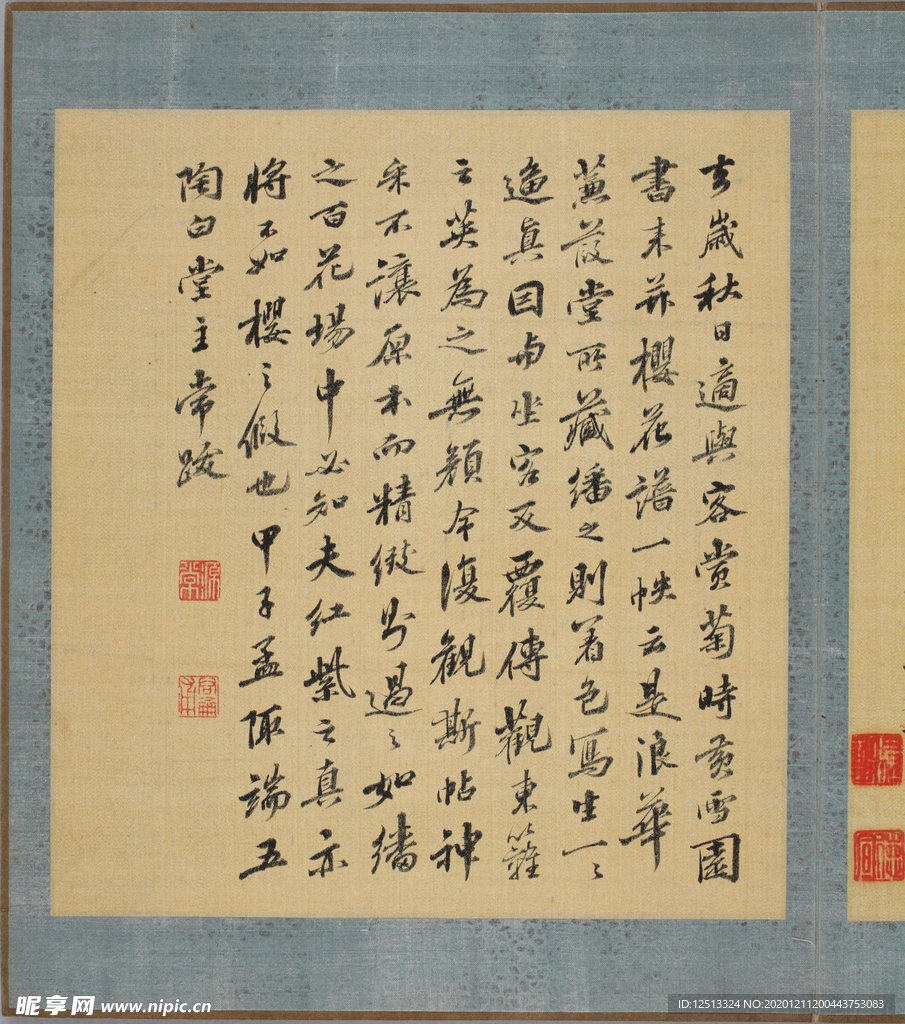 去歲秋日適與客賞菊時黄雪園
書来并櫻花譜一帙云是浪華
蒹葭堂所藏繙之則着色寫生一〻
逼真因与坐客反覆傳觀東籬
之英為之無顔今復觀斯帖神
采不讓原本而精緻殆過之如繙
之百花場中必知夫紅紫之真亦
將不如櫻之假也甲子孟陬端五
陶白堂主常跋
昵享网 www.nipic.cn
ID:12513324 NO:20201211200443753083